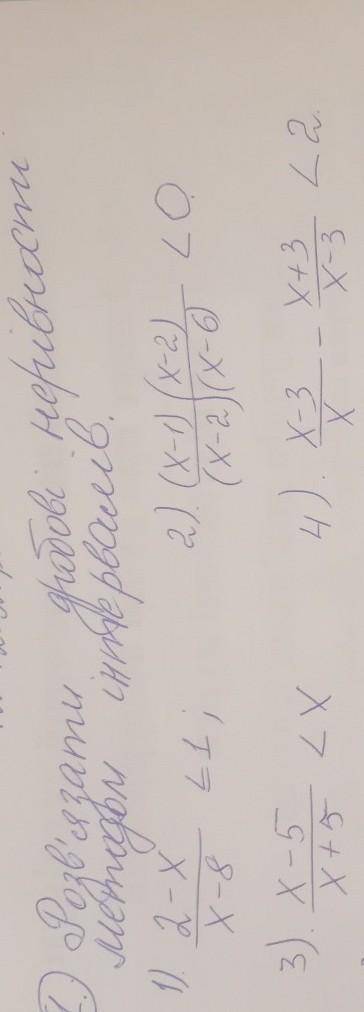 1.) Розв'язати дробові нерівности
методом інтервалів.
1). (2-x)/(x-8) < 1; 2). ((x-1)(x-2))/((x-2)(x-6)) < 0.
3). (x-5)/(x+5) < x 4). (x-3)/x - (x+3)/(x-3) < 2.